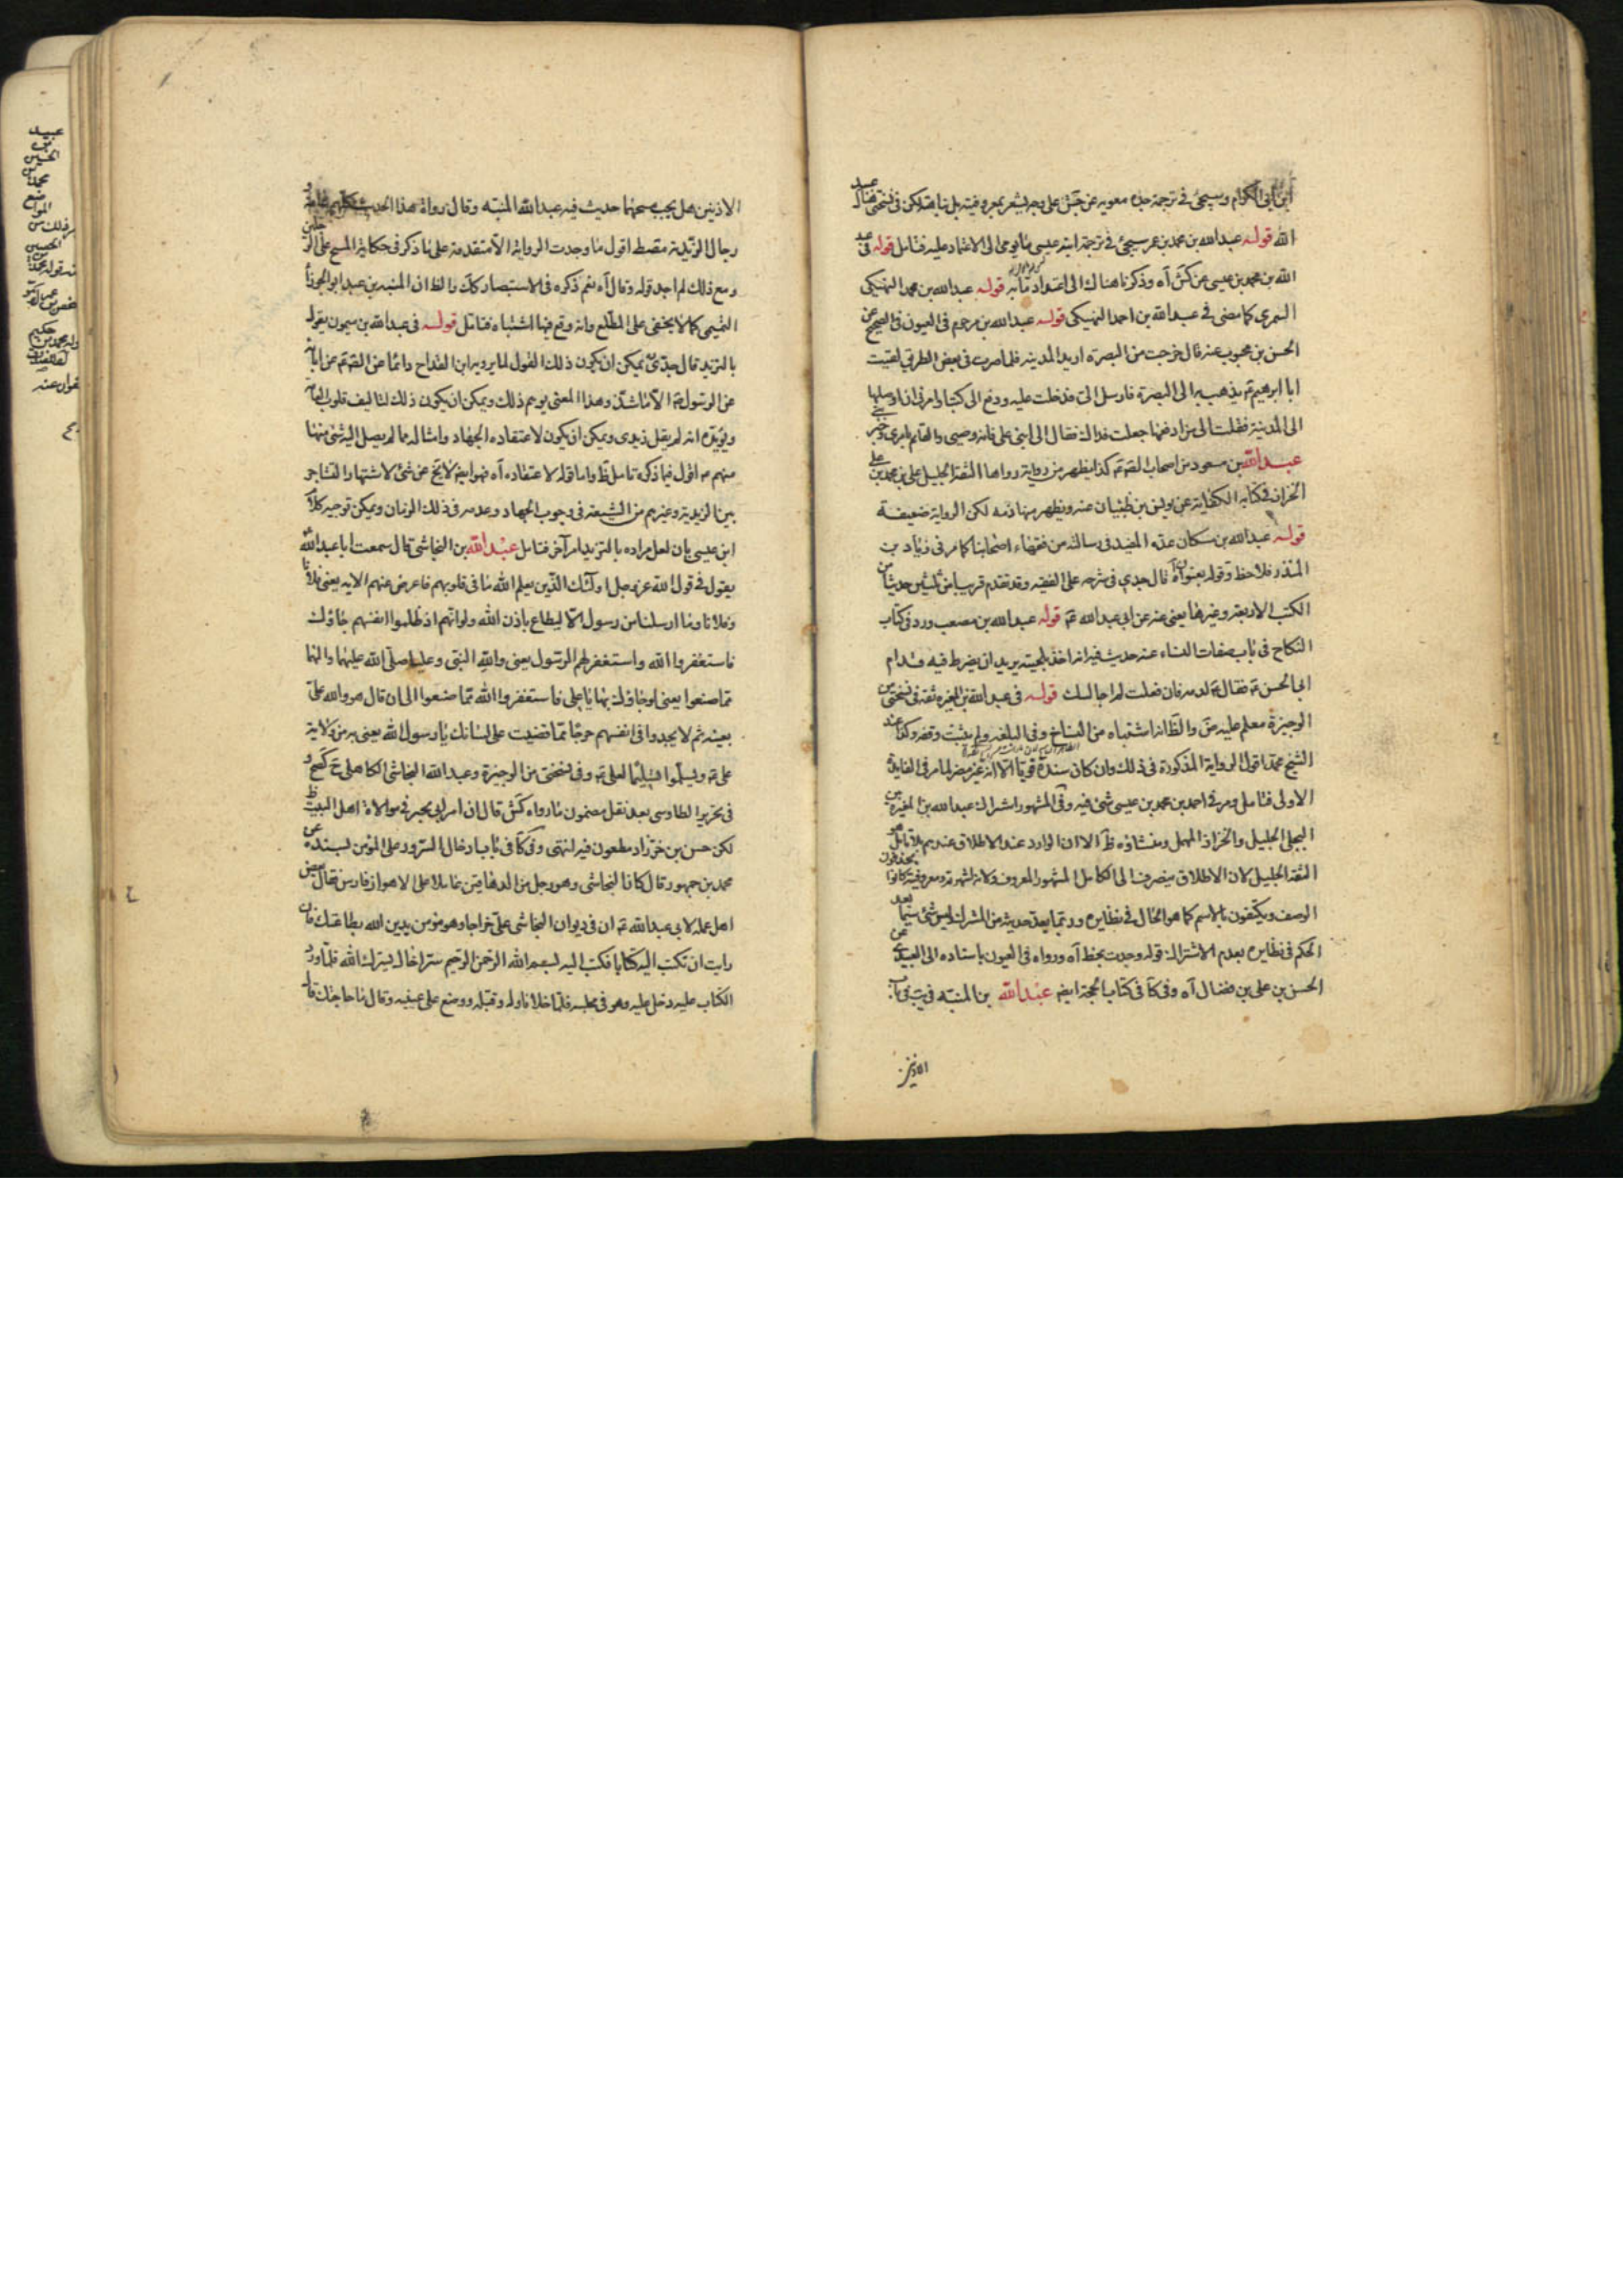 ابن ابى الكرام وسيجئ فى ترجمة جده معوية عن جش على وجه يشعر بمعروفيته بل نباهته لكن فى نسختى هناك عبد
الله قوله عبد الله بن محمد بن عمر سيجئ فى ترجمة ابنه عيسى ما يومى الى الاعتماد عليه فتامل قوله فى عبد
الله بن محمد بن عيسى عن كش آه وذكرنا هناك الى اعتداد ما به قوله عبد الله بن محمد النهيكى
السمرى كما مضى فى عبد الله بن احمد النهيكى قوله عبد الله بن مرحوم فى العيون فى الصحيح عن
الحسن بن محبوب عنه قال خرجت من البصرة اريد المدينة فلما صرت فى بعض الطريق لقيت
ابا ابرهيم ع يذهب به الى البصرة فارسل الى فدخلت عليه ودفع الى كتبا وامرنى ان اوصلها
الى المدينة فقلت الى من ادفعها جعلت فداك فقال الى ابنى على فانه وصيى والقايم بامرى وخير بنى
عبد الله بن مسعود من اصحاب الصادق ع كذا يظهر من رواية رواها الثقة الجليل على بن محمد بن على
الخزاز فى كتابه الكفاية عن يونس بن ظبيان عنه ويظهر منها ذمه لكن الرواية ضعيفة
قوله عبد الله بن مسكان عده المفيد فى رسالته من فقهاء اصحابنا كما مر فى زياد بن
المنذر فلاحظ وقوله بعنوان آه قال جدى فى شرحه على الفقيه وقد تقدم قريبا من ثلثين حديثا من
الكتب الاربعة وغيرها يعنى عنه عن ابى عبد الله ع قوله عبد الله بن مصعب ورد فى كتاب
النكاح فى باب صفات النساء عنه حديث فيه انه اخذ بلحيته يريد ان يضرط فيه قدام
ابى الحسن ع فقال ع لدمه فان فعلت لم اجالسك قوله فى عبد الله بن المغيرة ثقة فى نسختى من
الوجيزة معلم عليه ض والظ انه اشتباه من النساخ وفى البلغه ولم يثبت وقفه وكذا عند
الشيخ محمد اقول الرواية المذكورة فى ذلك وان كان سنده قويا الا انه غير مضر لما مر فى الفايدة
الاولى فتامل ومر فى احمد بن محمد بن عيسى شئ فيه وفى المشهور اشتراك عبد الله بن المغيرة بين
البجلى الجليل والخزاز المهمل ومنشاؤه ظ الا ان الوارد عند الاطلاق عندهم بلا تامل هو
الثقة الجليل لان الاطلاق ينصرف الى الكامل المشهور المعروف ولانه لشهرته ومعروفيته كانوا يحذفون
الوصف ويكتفون بالاسم كما هو الحال فى نظايره وربما يعد حديثه من المشترك ليس شئ سيما بعد
الحكم فى نظايره بعدم الاشتراك قوله وجدت بخط آه ورواه فى العيون باسناده الى العبيدى عن
الحسن بن على بن فضال آه وفى كا فى كتاب الحجة ايضه عبد الله بن المنبه فى يب فى باب
الاذنين
الاذنين هل يجب مسحهما حديث فيه عبد الله المنبه وقال رواة هذا الحديث كلهم عامة و
رجال الزيدية مقصط اقول ما وجدت الرواية الا متقدمة على ما ذكر فى حكاية المسح على الرجلين
ومع ذلك لم اجد قوله وقال آه نعم ذكره فى الاستبصار كك والظ ان المنبه بن عبد ابو الجوزا
التميمى كما لا يخفى على المطلع وانه وقع فيها اشتباه فتامل قوله فى عبد الله بن ميمون يقوله
بالتزيد قال جدى يمكن ان يكون ذلك القول لما يرويه ابن القداح دائما عن الصادق ع عن ابائه
عن الرسول ص الا ما شذ وهذا المعنى يوهم ذلك ويمكن ان يكون ذلك لتاليف قلوب العامة
ويؤيده انه لم يقل زيدى ويمكن ان يكون لاعتقاده الجهاد وامثاله مما لم يصل اليه شئ منها
منهم ع اقول فيما ذكره تامل ظ واما قوله لاعتقاده آه فهو ايضه لا يخ عن شئ لاشتهار التشاجر
بين الزيدية وغيرهم من الشيعة فى وجوب الجهاد وعدمه فى ذلك الزمان ويمكن توجيه كلام
ابن عيسى بان لعل مراده بالتزيد امر آخر فتامل عبد الله بن النجاشى قال سمعت ابا عبد الله
يقول فى قول الله عز وجل اولئك الذين يعلم الله ما فى قلوبهم فاعرض عنهم الايه يعنى فلانا
وفلانا وما ارسلنا من رسول الا ليطاع باذن الله ولو انهم اذ ظلموا انفسهم جاؤك
فاستغفروا الله واستغفر لهم الرسول يعنى والله النبى وعليا صلى الله عليهما والهما
مما صنعوا يعنى لو جاؤك بها يا على فاستغفروا الله مما صنعوا الى ان قال هو والله على
بعينه ثم لا يجدوا فى انفسهم حرجا مما قضيت على لسانك يا رسول الله يعنى به من ولاية
على ع ويسلموا تسليما لعلى ع وفى نسختى من الوجيزة وعبد الله النجاشى الكاهلى ح كصح و
فى تحرير الطاوسى بعد نقل مضمون ما رواه كش قال ان امر ابى بجير فى موالاة اهل البيت ظ
لكن حسن بن خرزاد مطعون فيه انتهى وفى كا فى باب ادخال السرور على المؤمن بسنده عن
محمد بن جمهور قال كان النجاشى وهو رجل من الدهاقين عاملا على الاهواز وفارس فقال بعض
اهل عمله لابى عبد الله ع ان فى ديوان النجاشى على خراجا وهو مؤمن يدين الله بطاعتك فان
رايت ان تكتب اليه كتابا فكتب اليه بسم الله الرحمن الرحيم سر اخاك يسرك الله فلما ورد
الكتاب عليه دخل عليه وهو فى مجلسه فلما خلا ناوله وقبله ووضع على عينيه وقال ما حاجتك قال